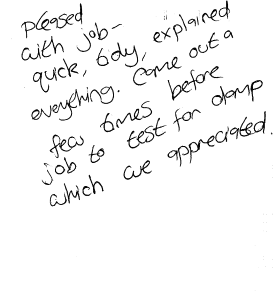 pleased
with job-
quick, tidy, explained
everything. Came out a
few times before
job to test for damp
which we appreciated.